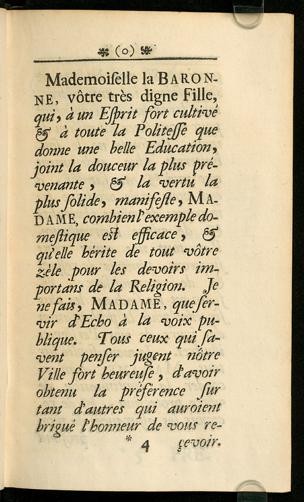 ❧ (o) ❧
Mademoiſelle la BARON-
NE, vôtre très digne Fille,
qui, à un Eſprit fort cultivé
& à toute la Politeſſe que
donne une belle Education,
joint la douceur la plus pré-
venante, & la vertu la
plus ſolide, manifeſte, MA-
DAME, combien l'exemple do-
meſtique eſt efficace, &
qu'elle hérite de tout vôtre
zéle pour les devoirs im-
portans de la Religion. Je
ne fais, MADAME, que ſer-
vir d'Echo à la voix pu-
blique. Tous ceux qui ſa-
vent penſer jugent nôtre
Ville fort heureuſe, d'avoir
obtenu la préférence ſur
tant d'autres qui auroient
brigué l'honneur de vous re-
* 4 çevoir.